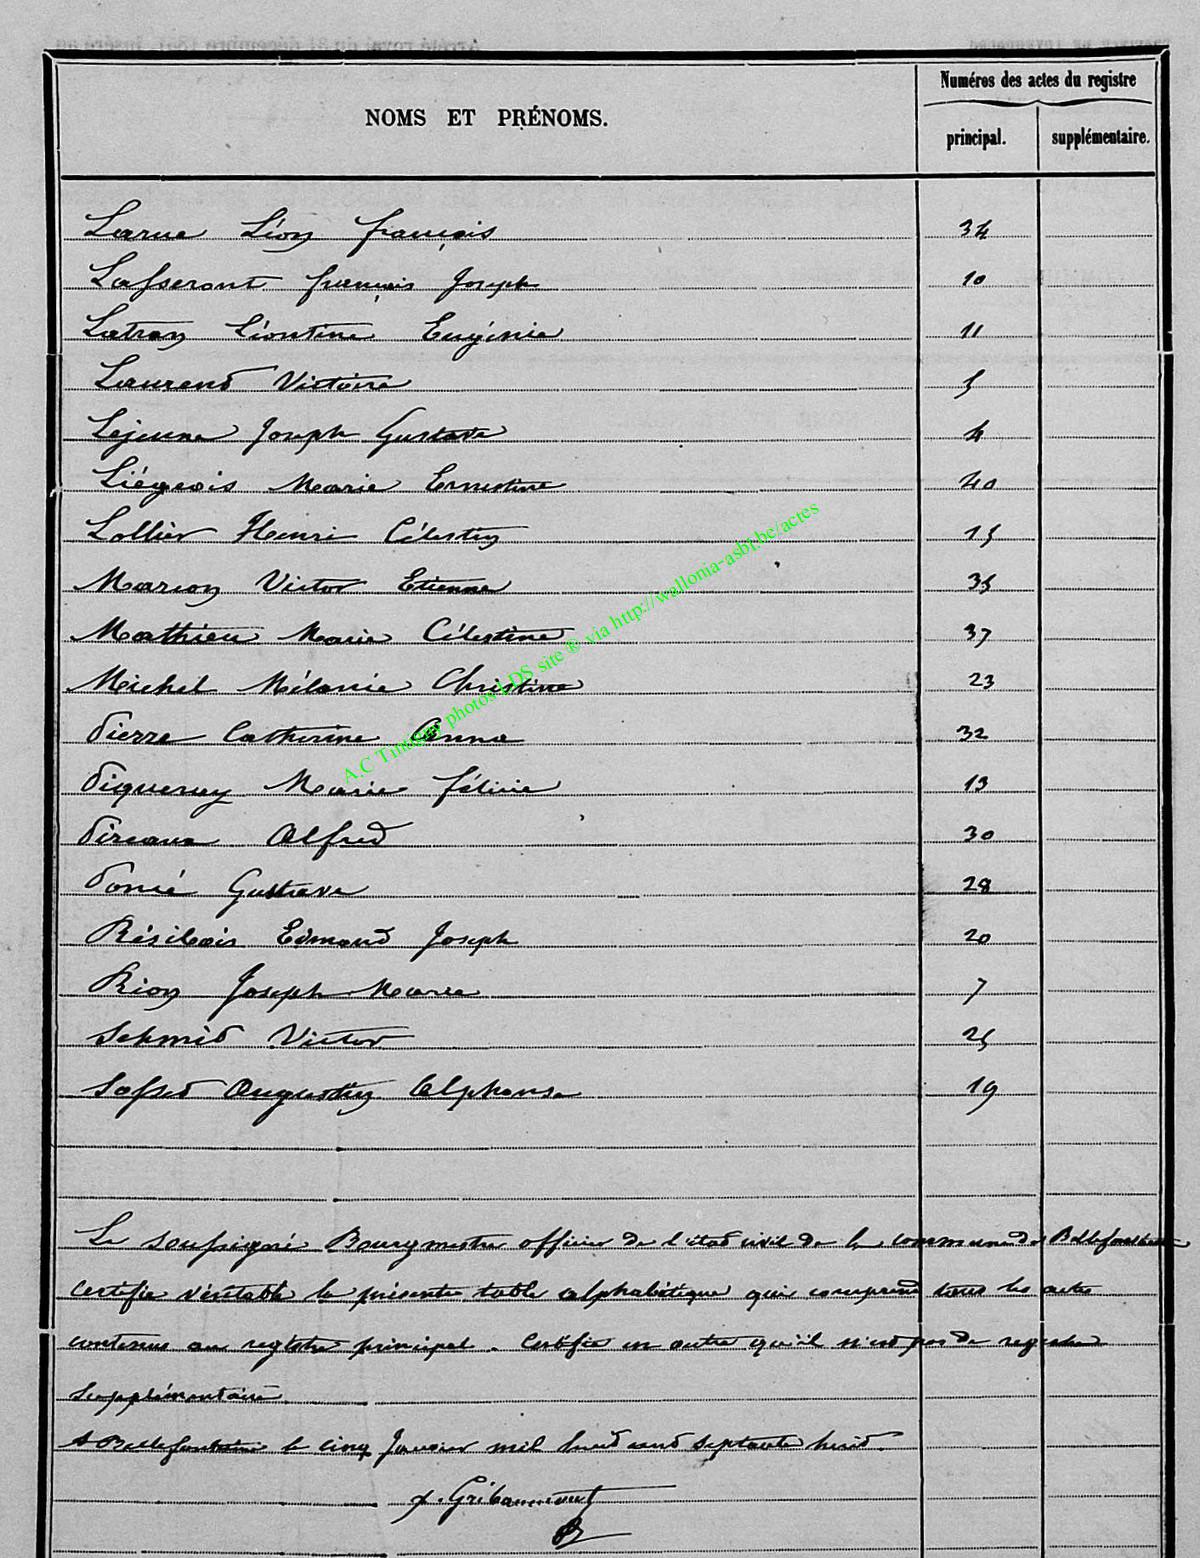 NOMS ET PRÉNOMS.
Numéros des actes du registre
principal. supplémentaire.
Larue Léon françois 34
Lafserant françois Joseph 10
Latran Léontine Eugénie 11
Laurend Victoire 5
Lejeune Joseph Gustave 4
Liégeois Marie Ernestine 40
Lollier Henri Célestin 15
Marion Victor Etienne 35
Mathieu Marie Célestine 37
Michel Mélanie Christine 23
Pierre Catherine Anna 32
Piqueray Marie félicie 13
Pireaux Alfred 30
Poncé Gustave 28
Résibois Edmond Joseph 20
Rion Joseph Marie 7
Schmid Victor 25
Safsed Augustin Alphonse 19
A.C Tintigny photos LDS site ® via http://wallonia-asbl.be/actes
Le soufsigné Bourgmestre officier de l'état civil de la commune de Bellefontaine
certifie véritable la présente table alphabétique qui comprend tous les actes
contenus au registre principal. Certifie en outre qu'il n'est pas de registre
supplémentaire
A Bellefontaine le cinq Janvier mil huit cent septante huit.